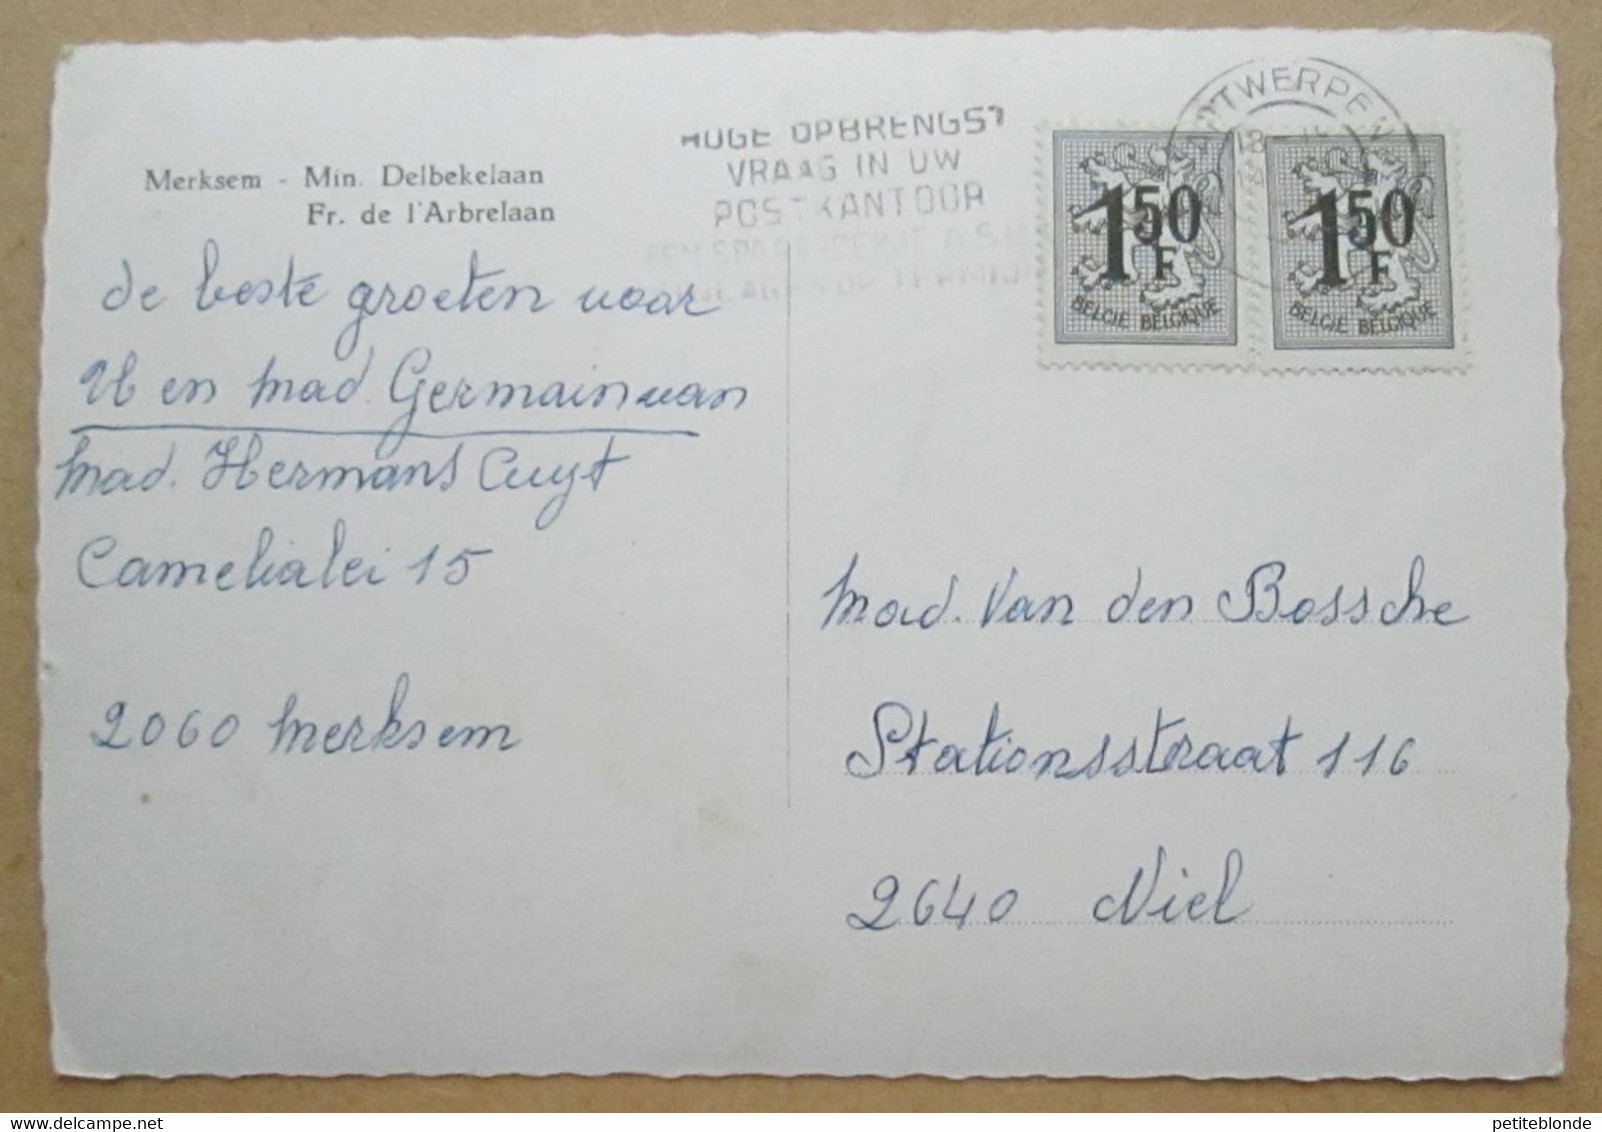 Merksem - Min. Delbekelaan
Fr. de l'Arbrelaan
de beste groeten voor
U en mad. Germain van
mad. Hermans Cuyt
Camelialei 15
2060 Merksem
HOGE OPBRENGST
VRAAG IN UW
POSTKANTOOR
ANTWERPEN
18
1 50 F
BELGIE BELGIQUE
1 50 F
BELGIE BELGIQUE
mad. Van den Bossche
Stationsstraat 116
2640 Niel
petiteblonde